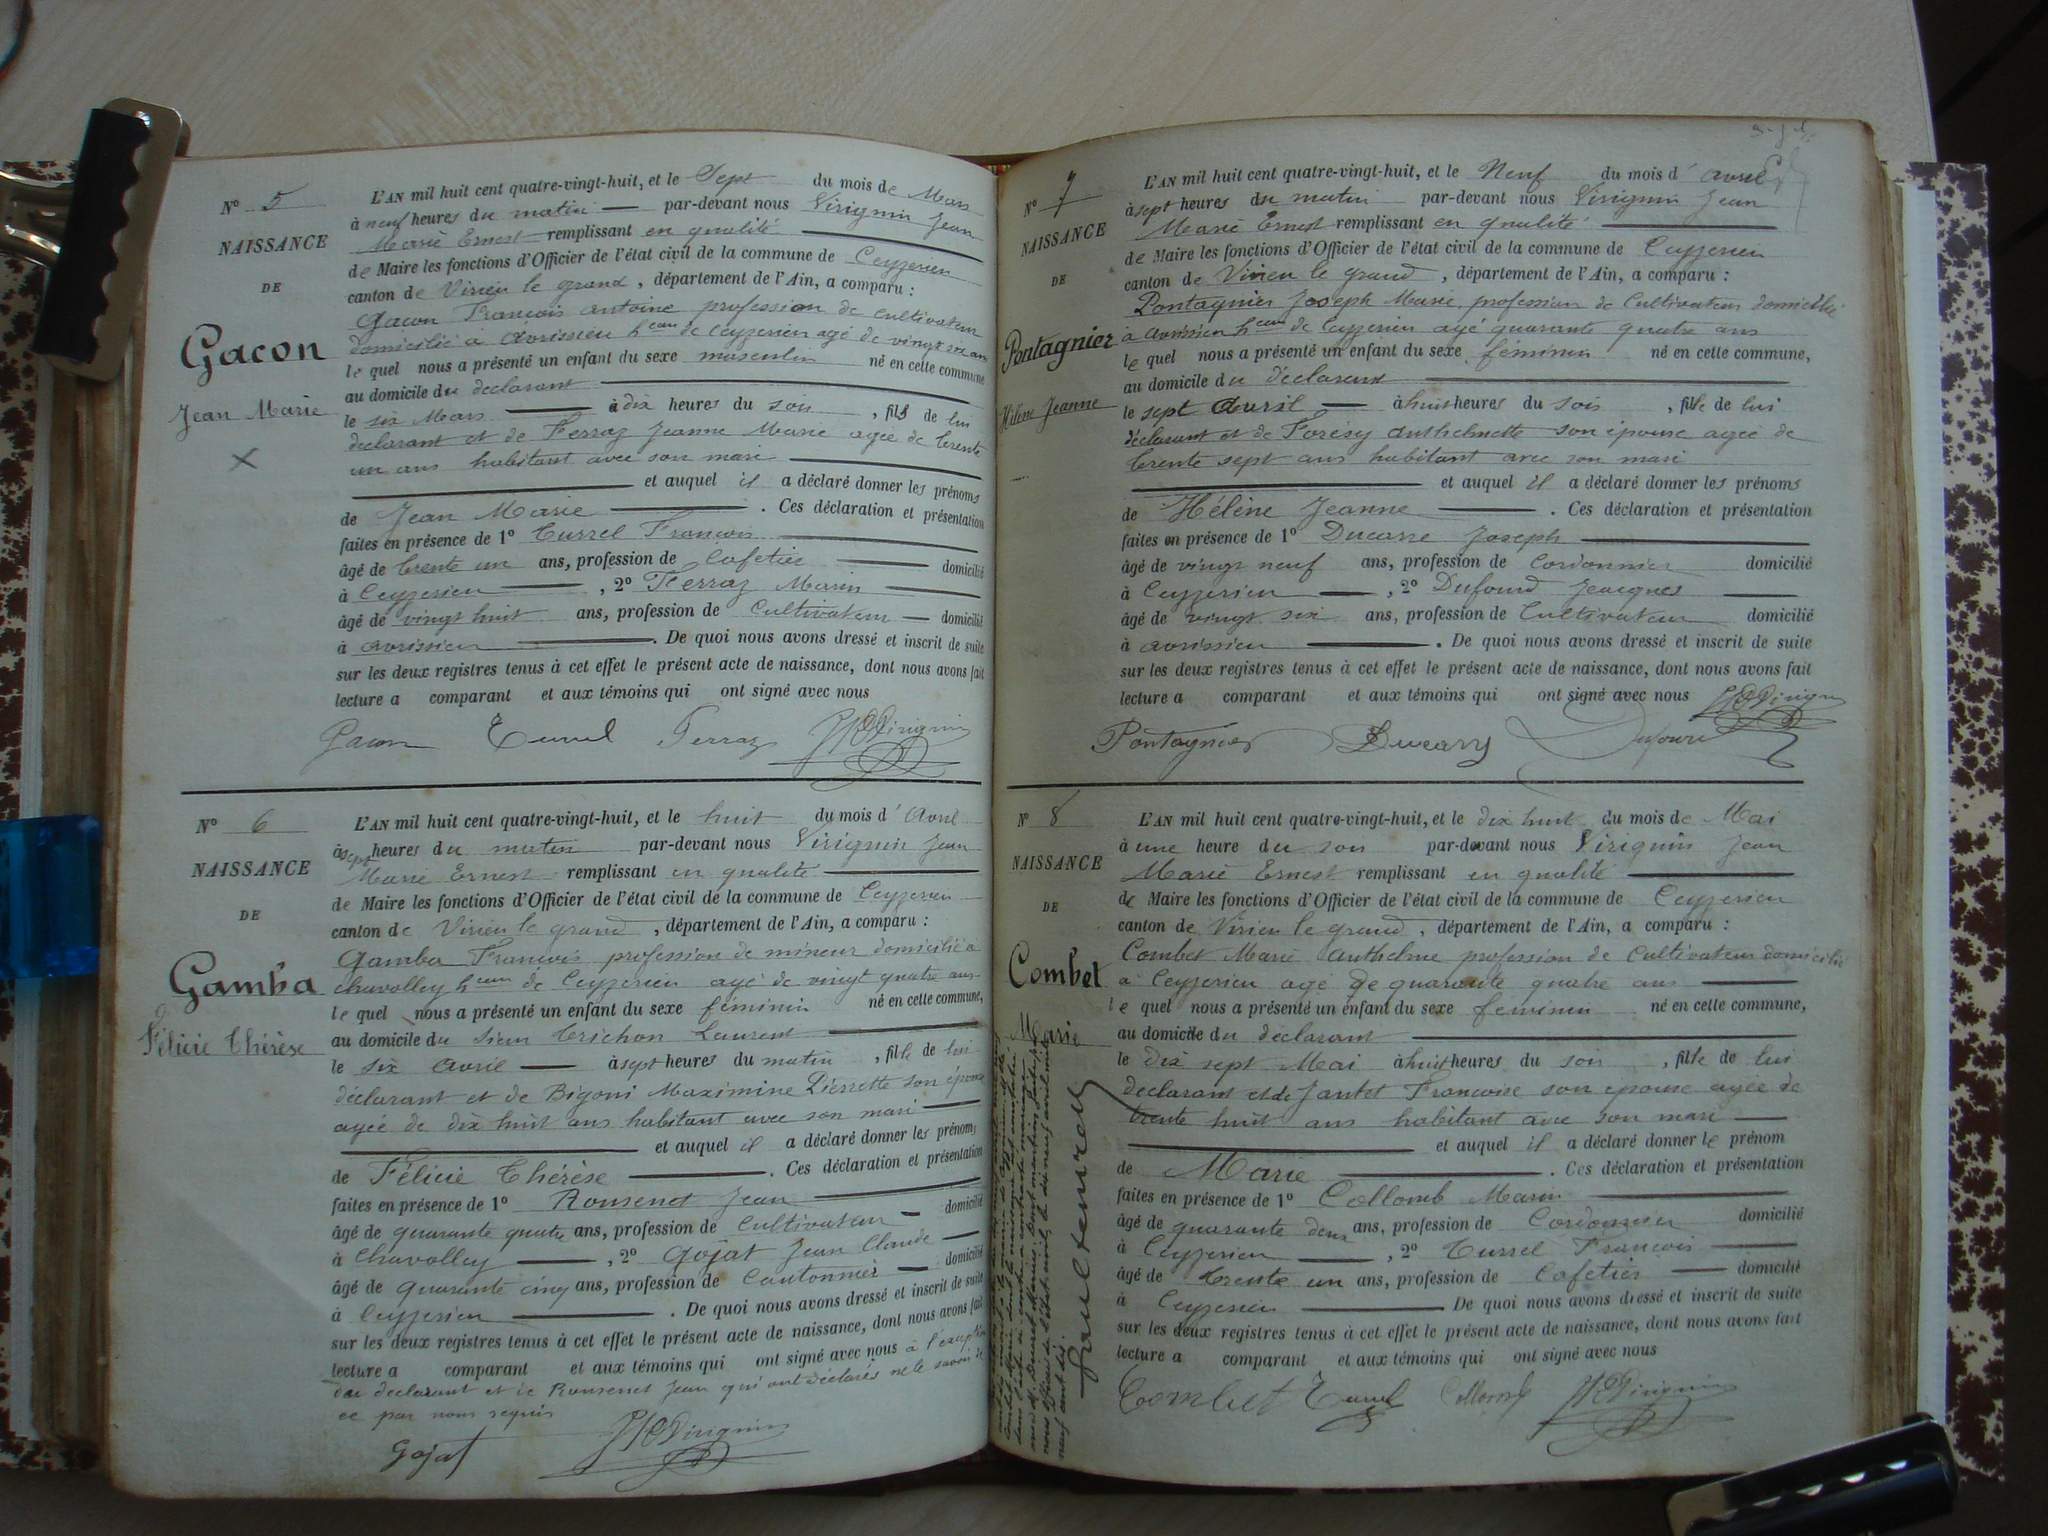 N° 5
NAISSANCE
DE
Gacon
Jean Marie
L'AN mil huit cent quatre-vingt-huit, et le Sept du mois de Mars
à neuf heures du matin par-devant nous Virignin Jean
Marie Ernest remplissant en qualité
de Maire les fonctions d'Officier de l'état civil de la commune de Ceyzerieu
canton de Virieu le grand, département de l'Ain, a comparu :
Gacon François antoine profession de cultivateur
domicilié à Avrissieu heau de Ceyzerieu agé de vingt six ans
le quel nous a présenté un enfant du sexe masculin né en cette commune
au domicile du déclarant
le six Mars à dix heures du soir, fils de lui
déclarant et de Ferraz Jeanne Marie agée de trente
un ans habitant avec son mari
et auquel il a déclaré donner les prénoms
de Jean Marie. Ces déclaration et présentation
faites en présence de 1° Turrel François
âgé de trente un ans, profession de Cafetier domicilié
à Ceyzerieu, 2° Ferraz Marin
âgé de vingt huit ans, profession de Cultivateur domicilié
à avrissieu. De quoi nous avons dressé et inscrit de suite
sur les deux registres tenus à cet effet le présent acte de naissance, dont nous avons fait
lecture a comparant et aux témoins qui ont signé avec nous
Gacon Turrel Ferraz JME Virignin
N° 6
NAISSANCE
DE
Gamba
Félicie Thérèse
L'AN mil huit cent quatre-vingt-huit, et le huit du mois d'Avril
à sept heures du matin par-devant nous Virignin Jean
Marie Ernest remplissant en qualité
de Maire les fonctions d'Officier de l'état civil de la commune de Ceyzerieu
canton de Virieu le grand, département de l'Ain, a comparu :
Gamba François profession de mineur domicilié a
chavolley heau de Ceyzerieu agé de vingt quatre ans
le quel nous a présenté un enfant du sexe féminin né en cette commune,
au domicile du sieur Trichon Laurent
le six avril à sept heures du matin, fille de lui
déclarant et de Bigoni Maximine Pierrette son épouse
agée de dix huit ans habitant avec son mari
et auquel il a déclaré donner les prénoms
de Félicie Thérèse. Ces déclaration et présentation
faites en présence de 1° Rousenet Jean
âgé de quarante quatre ans, profession de Cultivateur domicilié
à Chavolley, 2° Gojat Jean Claude
âgé de quarante cinq ans, profession de Cantonnier domicilié
à Ceyzerieu. De quoi nous avons dressé et inscrit de suite
sur les deux registres tenus à cet effet le présent acte de naissance, dont nous avons fait
lecture a comparant et aux témoins qui ont signé avec nous à l'exception
du declarant et de Rousenet Jean qui ont déclarés ne le savoir de
ce par nous requis
Gojat JME Virignin
N° 7
NAISSANCE
DE
Pontagnier
Hélène Jeanne
L'AN mil huit cent quatre-vingt-huit, et le Neuf du mois d'avril
à sept heures du matin par-devant nous Virignin Jean
Marie Ernest remplissant en qualité
de Maire les fonctions d'Officier de l'état civil de la commune de Ceyzerieu
canton de Virieu le grand, département de l'Ain, a comparu :
Pontagnier Joseph Marie profession de Cultivateur domicilié
à avrissieu heau de Ceyzerieu agé quarante quatre ans
le quel nous a présenté un enfant du sexe féminin né en cette commune,
au domicile du déclarant
le sept Avril à huit heures du soir, fille de lui
déclarant et de Forésy Anthelmette son épouse agée de
trente sept ans habitant avec son mari
et auquel il a déclaré donner les prénoms
de Hélène Jeanne. Ces déclaration et présentation
faites en présence de 1° Ducarre Joseph
âgé de vingt neuf ans, profession de Cordonnier domicilié
à Ceyzerieu, 2° Dufourd Jacques
âgé de vingt six ans, profession de Cultivateur domicilié
à avrissieu. De quoi nous avons dressé et inscrit de suite
sur les deux registres tenus à cet effet le présent acte de naissance, dont nous avons fait
lecture a comparant et aux témoins qui ont signé avec nous JME Virignin
Pontagnier Ducarre Dufourd
N° 8
NAISSANCE
DE
Combet
Marie
L'AN mil huit cent quatre-vingt-huit, et le dix huit du mois de Mai
à une heure du soir par-devant nous Virignin Jean
Marie Ernest remplissant en qualité
de Maire les fonctions d'Officier de l'état civil de la commune de Ceyzerieu
canton de Virieu le grand, département de l'Ain, a comparu :
Combet Marie Anthelme profession de Cultivateur domicilié
a Ceyzerieu agé de quarante quatre ans
le quel nous a présenté un enfant du sexe feminin né en cette commune,
au domicile du déclarant
le dix sept Mai à huit heures du soir, fille de lui
déclarant et de Jantet Françoise son épouse agée de
trente huit ans habitant avec son mari
et auquel il a déclaré donner le prénom
de Marie. Ces déclaration et présentation
faites en présence de 1° Collomb Marin
âgé de quarante deux ans, profession de Cordonnier domicilié
à Ceyzerieu, 2° Turrel François
âgé de trente un ans, profession de Cafetier domicilié
à Ceyzerieu De quoi nous avons dressé et inscrit de suite
sur les deux registres tenus à cet effet le présent acte de naissance, dont nous avons fait
lecture a comparant et aux témoins qui ont signé avec nous
Combet Turrel Collomb JME Virignin